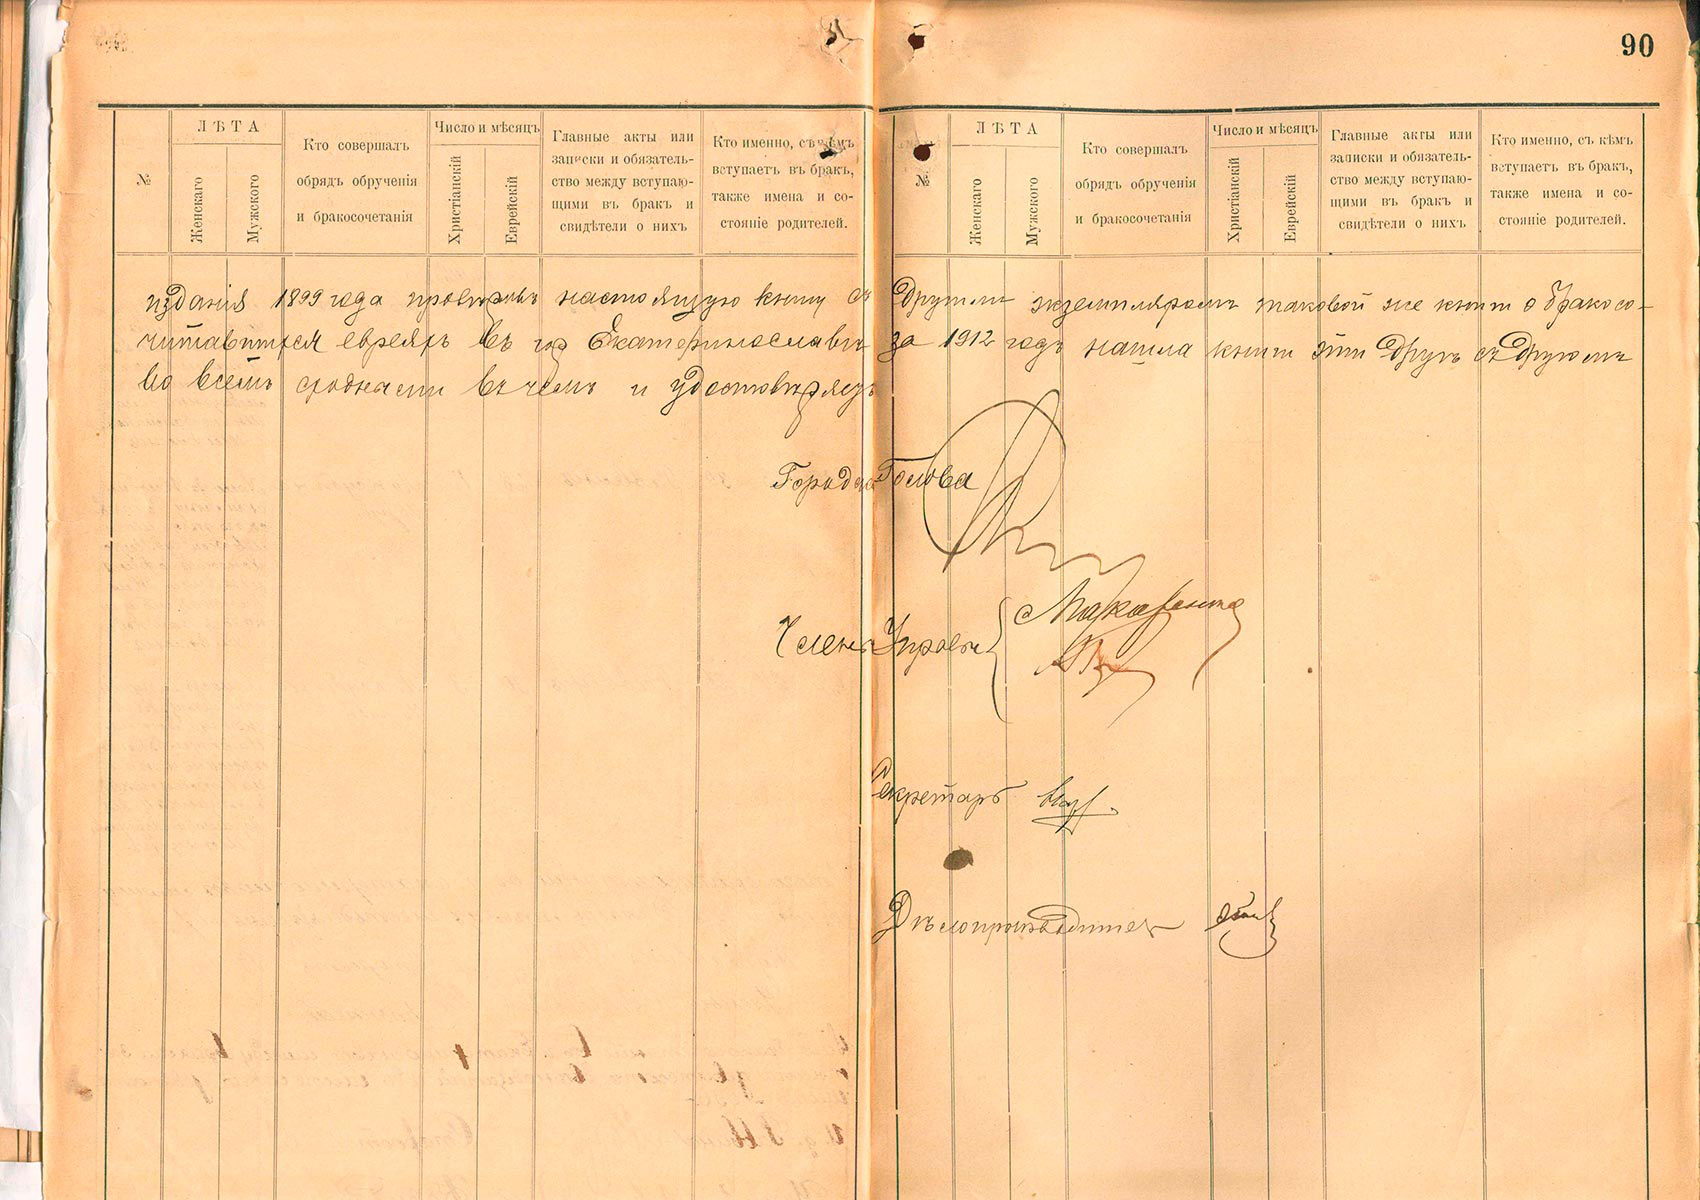 90
№
ЛѢТА
Женскаго
Мужского
Кто совершалъ
обрядъ обрученія
и бракосочетанія
Число и мѣсяцъ
Христіанскій
Еврейскій
Главные акты или
записки и обязатель-
ство между вступаю-
щими въ бракъ и
свидѣтели о нихъ
Кто именно, съ кѣмъ
вступаетъ въ бракъ,
также имена и со-
стояніе родителей.
№
ЛѢТА
Женскаго
Мужского
Кто совершалъ
обрядъ обрученія
и бракосочетанія
Число и мѣсяцъ
Христіанскій
Еврейскій
Главные акты или
записки и обязатель-
ство между вступаю-
щими въ бракъ и
свидѣтели о нихъ
Кто именно, съ кѣмъ
вступаетъ въ бракъ,
также имена и со-
стояніе родителей.
изданія 1899 года провѣривъ настоящую книгу съ другимъ экземпляромъ таковой же книги о бракосо-
читавшихся евреяхъ въ гор Екатеринославѣ за 1912 годъ нашла книги эти другъ съ другомъ
во всемъ сходными въ чемъ и удостовѣряетъ
Городск Голова
Члены Управы
Макаренко
Секретарь
Дѣлопроизводитель